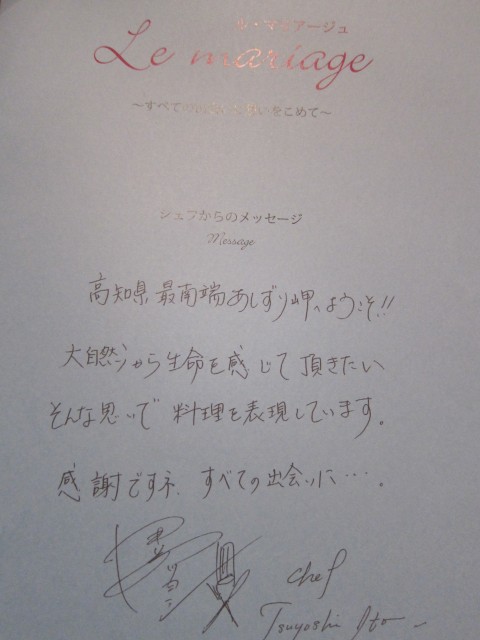 ル・マリアージュ
Le mariage
～すべての いをこめて～
シェフからのメッセージ
Message
高知県最南端あしずり岬へようこそ!!
大自然から生命を感じて頂きたい
そんな思いで料理を表現しています。
感謝ですネ、すべての出会いに…。
chef
Tsuyoshi Ito